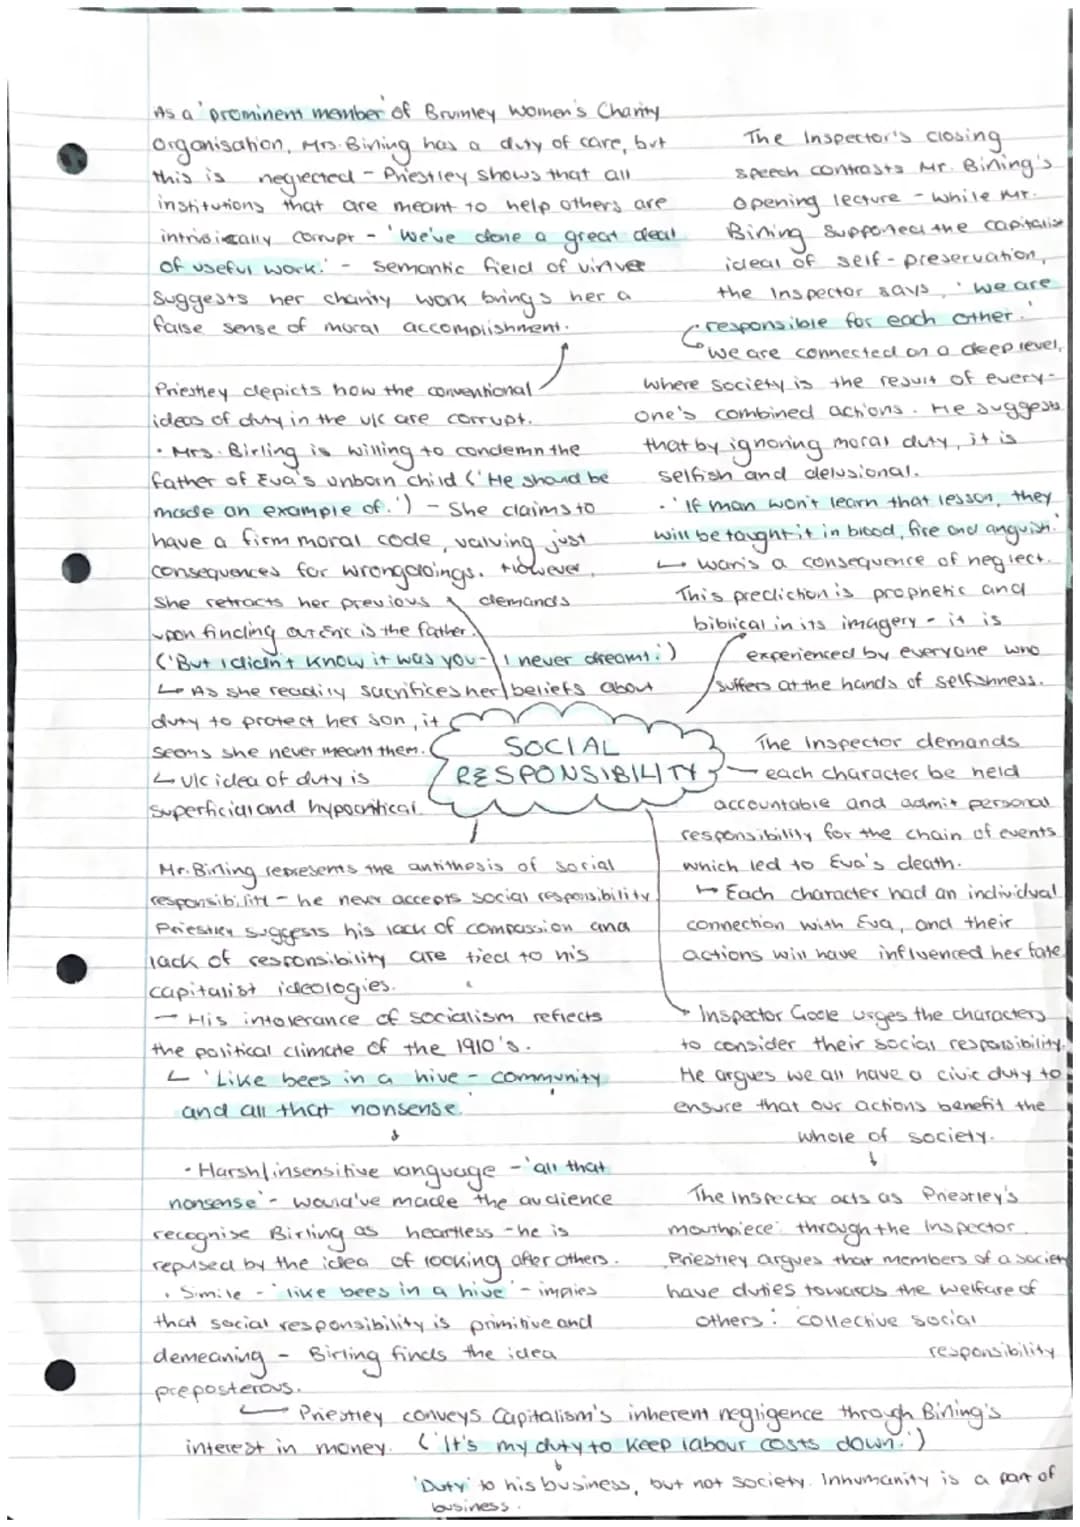 As a 'prominent member' of Brumley Women's Charity
Organisation, Mrs. Birling has a duty of care, but
this is neglected - Priestley shows that all
institutions that are meant to help others are
intrinsically corrupt - 'We've done a great deal
of useful work.' - semantic field of virtue
suggests her charity work brings her a
false sense of moral accomplishment.
Priestley depicts how the conventional
ideas of duty in the u/c are corrupt.
· Mrs. Birling is willing to condemn the
father of Eva's unborn child ('He should be
made an example of.') - She claims to
have a firm moral code, valuing just
consequences for wrongdoings. However,
she retracts her previous demands
upon finding out Eric is the father.
('But I didn't know it was you - I never dreamt.')
↳ As she readily sacrifices her beliefs about
duty to protect her son, it
seems she never meant them.
↳ u/c idea of duty is
superficial and hypocritical.
The Inspector's closing
speech contrasts Mr. Birling's
opening lecture - while Mr.
Birling supported the capitalist
ideal of self-preservation,
the Inspector says, 'we are
responsible for each other.'
↳ We are connected on a deep level,
where society is the result of every-
one's combined actions. He suggests
that by ignoring moral duty, it is
selfish and delusional.
· 'If man won't learn that lesson, they
will be taught it in blood, fire and anguish.'
↳ war is a consequence of neglect.
This prediction is prophetic and
biblical in its imagery - it is
experienced by everyone who
suffers at the hands of selfishness.
SOCIAL
RESPONSIBILITY
The Inspector demands
each character be held
accountable and admit personal
responsibility for the chain of events
which led to Eva's death.
↳ Each character had an individual
connection with Eva, and their
actions will have influenced her fate
Mr. Birling represents the antithesis of social
responsibility - he never accepts social responsibility
Priestley suggests his lack of compassion and
lack of responsibility are tied to his
capitalist ideologies.
→ His intolerance of socialism reflects
the political climate of the 1910's.
↳ 'Like bees in a hive - community
and all that nonsense.'
↓
· Harsh/insensitive language - 'all that
nonsense' - would've made the audience
recognise Birling as heartless - he is
repulsed by the idea of looking after others.
· Simile - 'like bees in a hive' - implies
that social responsibility is primitive and
demeaning - Birling finds the idea
preposterous.
↳ Priestley conveys Capitalism's inherent negligence through Birling's
interest in money. ('It's my duty to keep labour costs down.')
↓
'Duty' to his business, but not society. Inhumanity is a part of
business.
Inspector Goole urges the characters
to consider their social responsibility.
He argues we all have a civic duty to
ensure that our actions benefit the
whole of society.
↓
The Inspector acts as Priestley's
mouthpiece: through the Inspector
Priestley argues that members of a society
have duties towards the welfare of
others: collective social
responsibility